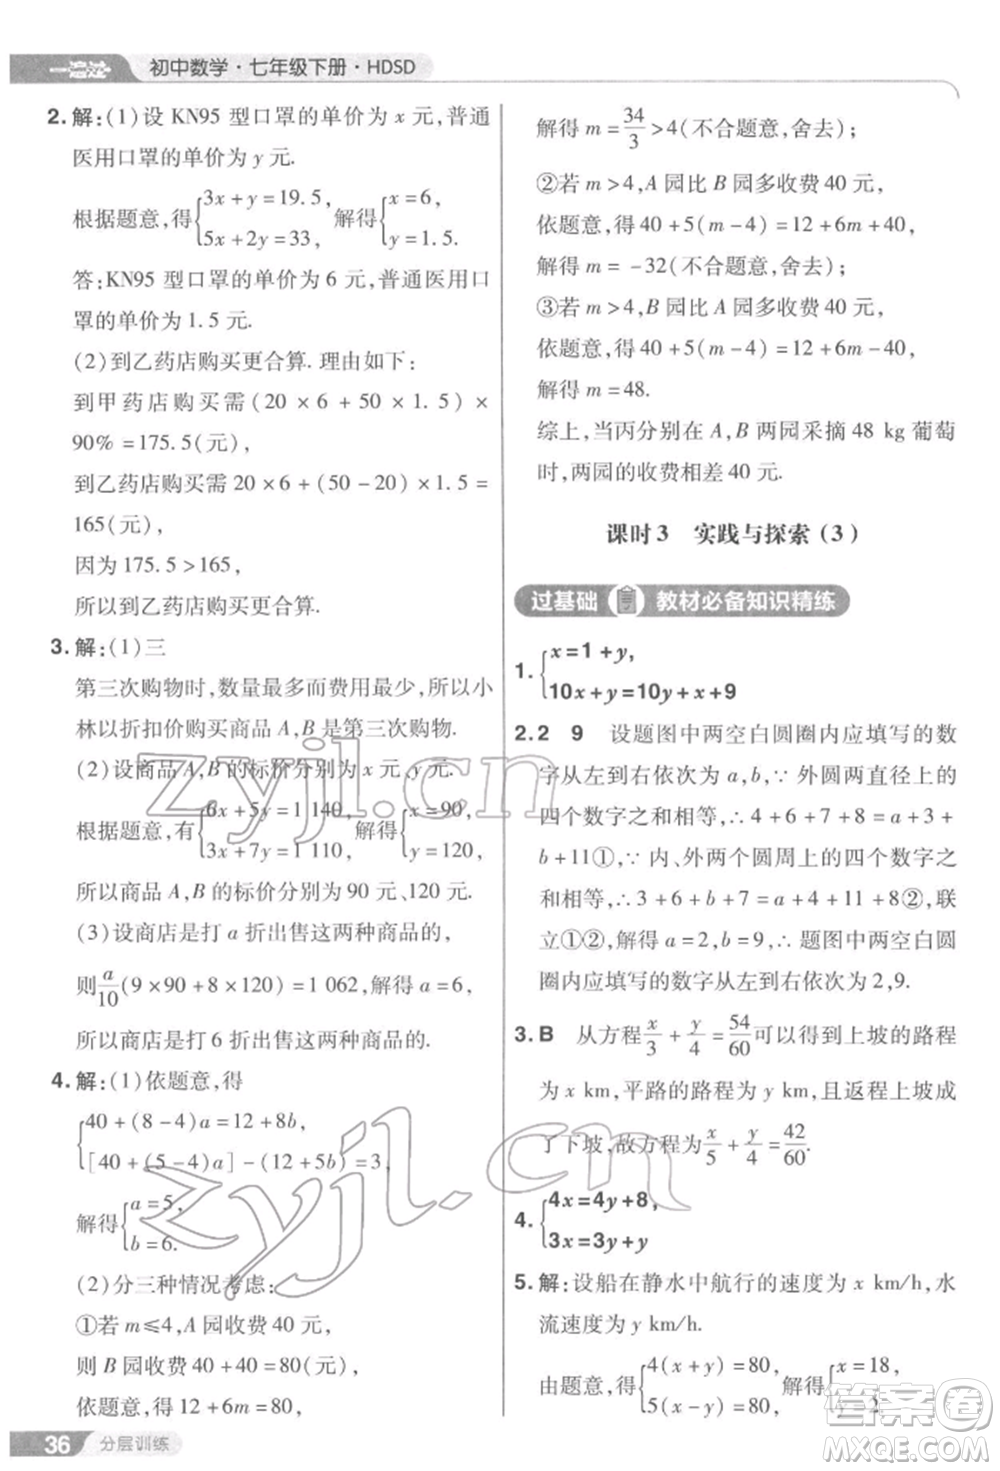 一遍过 初中数学·七年级下册·HDSD
2.解:(1)设 KN95 型口罩的单价为 x 元,普通
医用口罩的单价为 y 元.
根据题意,得{3x+y=19.5, 5x+2y=33, 解得{x=6, y=1.5.
答:KN95 型口罩的单价为 6 元,普通医用口
罩的单价为 1.5 元.
(2)到乙药店购买更合算.理由如下:
到甲药店购买需(20×6+50×1.5)×
90%=175.5(元),
到乙药店购买需 20×6+(50-20)×1.5=
165(元),
因为 175.5>165,
所以到乙药店购买更合算.
3.解:(1)三
第三次购物时,数量最多而费用最少,所以小
林以折扣价购买商品 A,B 是第三次购物.
(2)设商品 A,B 的标价分别为 x 元、y 元.
根据题意,有{6x+5y=1 140, 3x+7y=1 110, 解得{x=90, y=120,
所以商品 A,B 的标价分别为 90 元、120 元.
(3)设商店是打 a 折出售这两种商品的,
则 a/10 (9×90+8×120)=1 062,解得 a=6,
所以商店是打 6 折出售这两种商品的.
4.解:(1)依题意,得
{40+(8-4)a=12+8b,
[40+(5-4)a]-(12+5b)=3,
解得{a=5, b=6.
(2)分三种情况考虑:
①若 m≤4,A 园收费 40 元,
则 B 园收费 40+40=80(元),
依题意,得 12+6m=80,
36 分层训练
解得 m=34/3>4(不合题意,舍去);
②若 m>4,A 园比 B 园多收费 40 元,
依题意,得 40+5(m-4)=12+6m+40,
解得 m=-32(不合题意,舍去);
③若 m>4,B 园比 A 园多收费 40 元,
依题意,得 40+5(m-4)+40=12+6m,
解得 m=48.
综上,当丙分别在 A,B 两园采摘 48 kg 葡萄
时,两园的收费相差 40 元.
课时3 实践与探索(3)
过基础 教材必备知识精练
1.{x=1+y, 10x+y=10y+x+9
2.2 9 设题图中两空白圆圈内应填写的数
字从左到右依次为 a,b,∵ 外圆两直径上的
四个数字之和相等,∴4+6+7+8=a+3+
b+11①,∵ 内、外两个圆周上的四个数字之
和相等,∴3+6+b+7=a+4+11+8②,联
立①②,解得 a=2,b=9,∴ 题图中两空白圆
圈内应填写的数字从左到右依次为 2,9.
3.B 从方程 x/3+y/4=54/60 可以得到上坡的路程
为 x km,平路的路程为 y km,且返程上坡成
了下坡,故方程为 x/5+y/4=42/60.
4.{4x=4y+8, 3x=3y+y
5.解:设船在静水中航行的速度为 x km/h,水
流速度为 y km/h.
由题意,得{4(x+y)=80, 5(x-y)=80, 解得{x=18, y=2.
zyjl.cn
zyjl.cn
答案圈
MXQE.COM